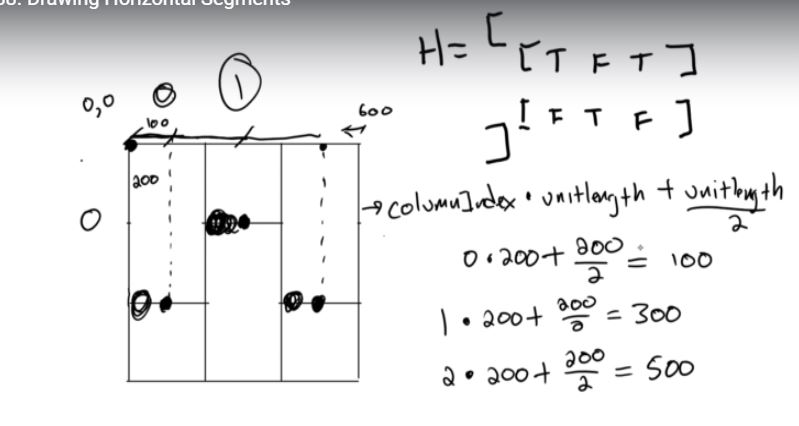 38. Drawing Horizontal Segments
H = [
[ T F T ]
[ F T F ]
]
0,0 0 1
100 600
200
0
→ columnIndex • unitlength + unitlength
2
0 • 200 + 200 = 100
2
1 • 200 + 200 = 300
2
2 • 200 + 200 = 500
2